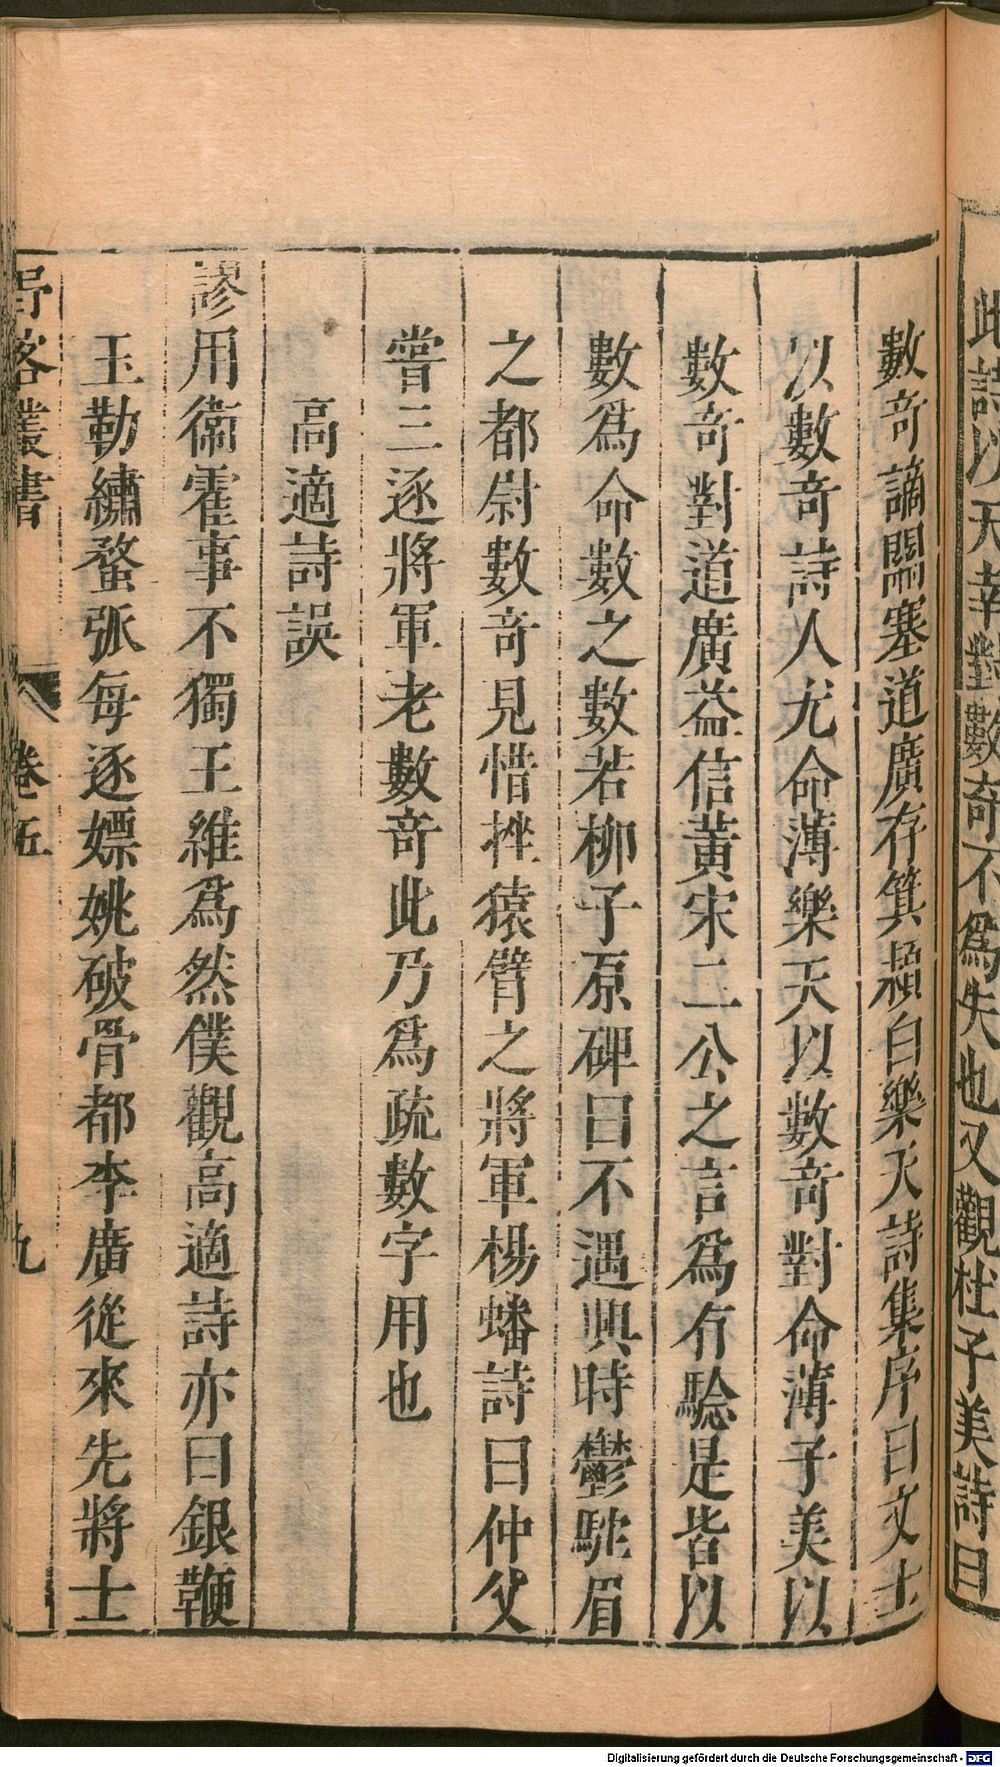 此詩以天幸對數奇不爲失也又觀杜子美詩曰
數奇謫關塞道廣存箕潁白樂天詩集序曰文士
以數奇詩人尤命薄樂天以數奇對命薄子美以
數奇對道廣益信黃宋二公之言爲有驗是皆以
數爲命數之數若柳子厚碑曰不遇興時鬱駝眉
之都尉數奇見惜挫猿臂之將軍楊蟠詩曰仲父
嘗三逐將軍老數奇此乃爲疏數字用也
高適詩誤
謬用衛霍事不獨王維爲然僕觀高適詩亦曰銀鞭
玉勒繡蝥弧每逐嫖姚破骨都李廣從來先將士
野客叢書 卷五 九
Digitalisierung gefördert durch die Deutsche Forschungsgemeinschaft - DFG